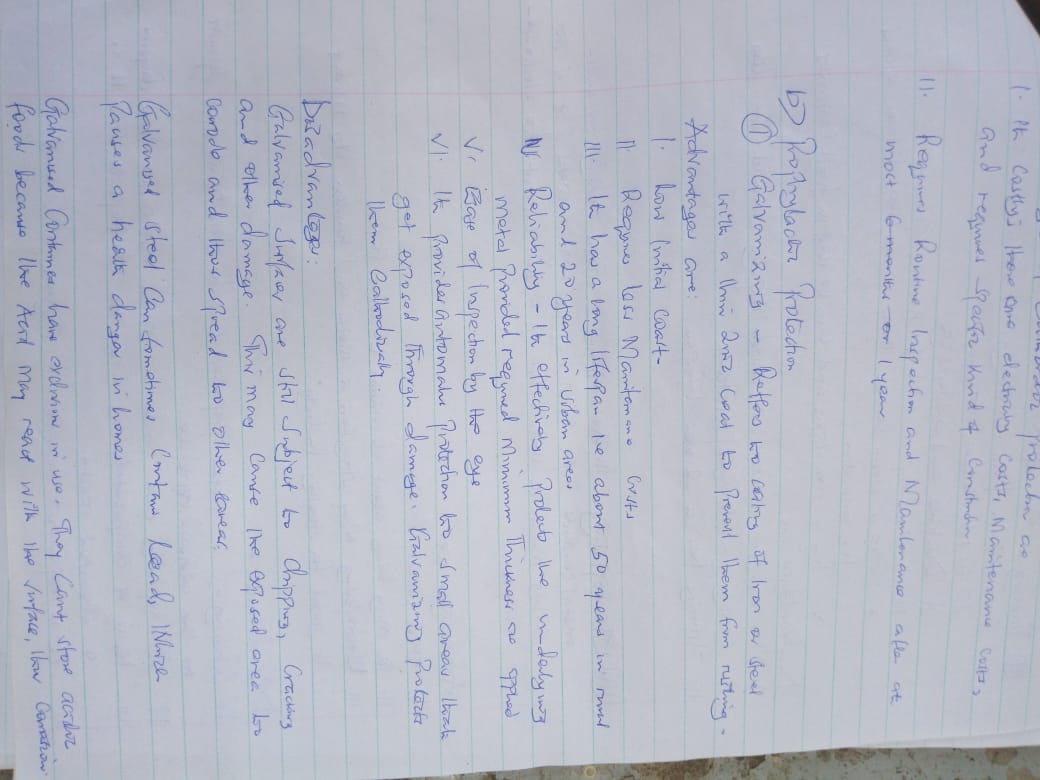 Protection are
I. It Costly; there are electricity costs, Maintenance costs,
and requires specific kind of
II. Requires Routine Inspection and Maintenance after at
most 6 months or 1 year
b) Prophylactic Protection
(i) Galvanizing - Reffers to coating of Iron or steel
with a thin Zinc Coat to Prevent them from rusting.
Advantages are:
I. Low Initial Costs
II. Requires less Maintenance Costs
III. It has a long lifespan ie about 50 years in rural
and 20 years in Urban areas
IV Reliability - It effectively Protects the underlying
metal Provided required Minimum Thickness is applied
V. Ease of Inspection by the eye
VI. It Provides automatic Protection to small areas that
get exposed through damage. Galvanizing Protects
them Cathodically.
Disadvantages:
Galvanised Surfaces are still Subject to Chipping, Cracking
and other damage. This may Cause the exposed area to
corrode and thus Spread to other areas.
Galvanised steel Can Sometimes Contain lead, Which
Pauses a health danger in homes
Galvanised Containers have in use. They Can't store acidic
foods because the Acid may react with the Surface, thus